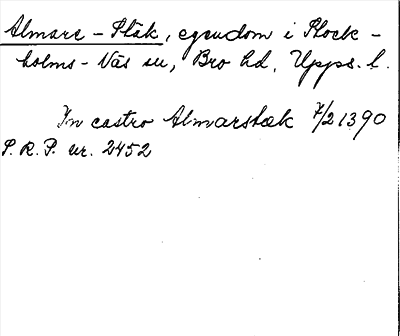 Almare-Stäk, egendom i Stock-
holms-Näs sn, Bro hd, Upps. l.
In castro Almarstæk 7/2 1390
S. R. P. nr. 2452